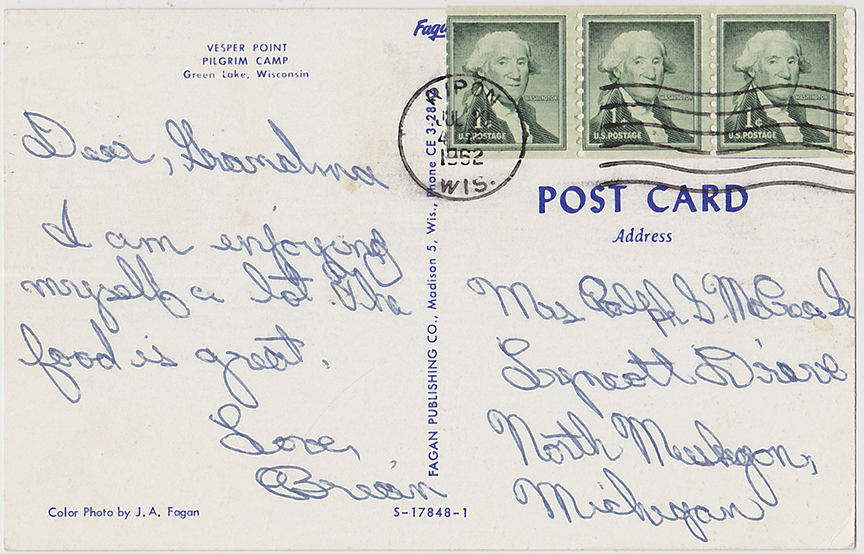 VESPER POINT
PILGRIM CAMP
Green Lake, Wisconsin
Dear, Grandma
I am enjoying
myself a lot. The
food is great.
Love,
Brian
Color Photo by J. A. Fagan
S-17848-1
FAGAN PUBLISHING CO., Madison 5, Wis., Phone CE 3-28
RIPON
JUL
4
1962
WIS.
WASHINGTON
1¢
U.S. POSTAGE
WASHINGTON
1¢
U.S. POSTAGE
WASHINGTON
1¢
U.S. POSTAGE
POST CARD
Address
Mrs Ralph G. McGee
Drive
North Muskegon,
Michigan